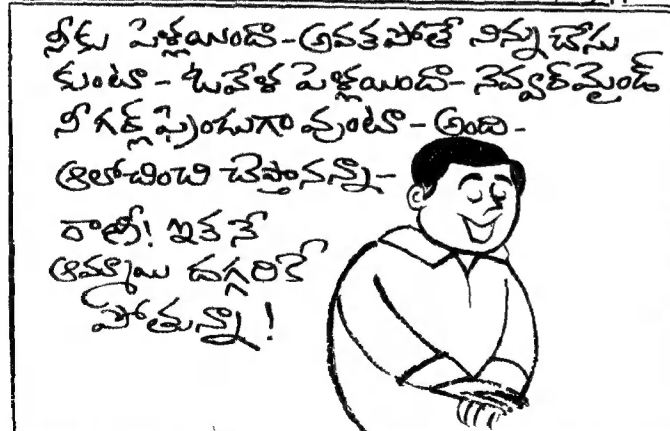 నీకు పెళ్లయిందా-అవకపోతే నిన్ను చేసు
కుంటా - ఒవేళ పెళ్లయిందా- నెవ్వర్ మైండ్
నీ గర్ల్ ఫ్రెండుగా వుంటా - అంది -
ఆలోచించి చెప్తానన్నా-
రాణీ! ఇక నే
ఆమ్మాయి దగ్గరికే
పోతున్నా!